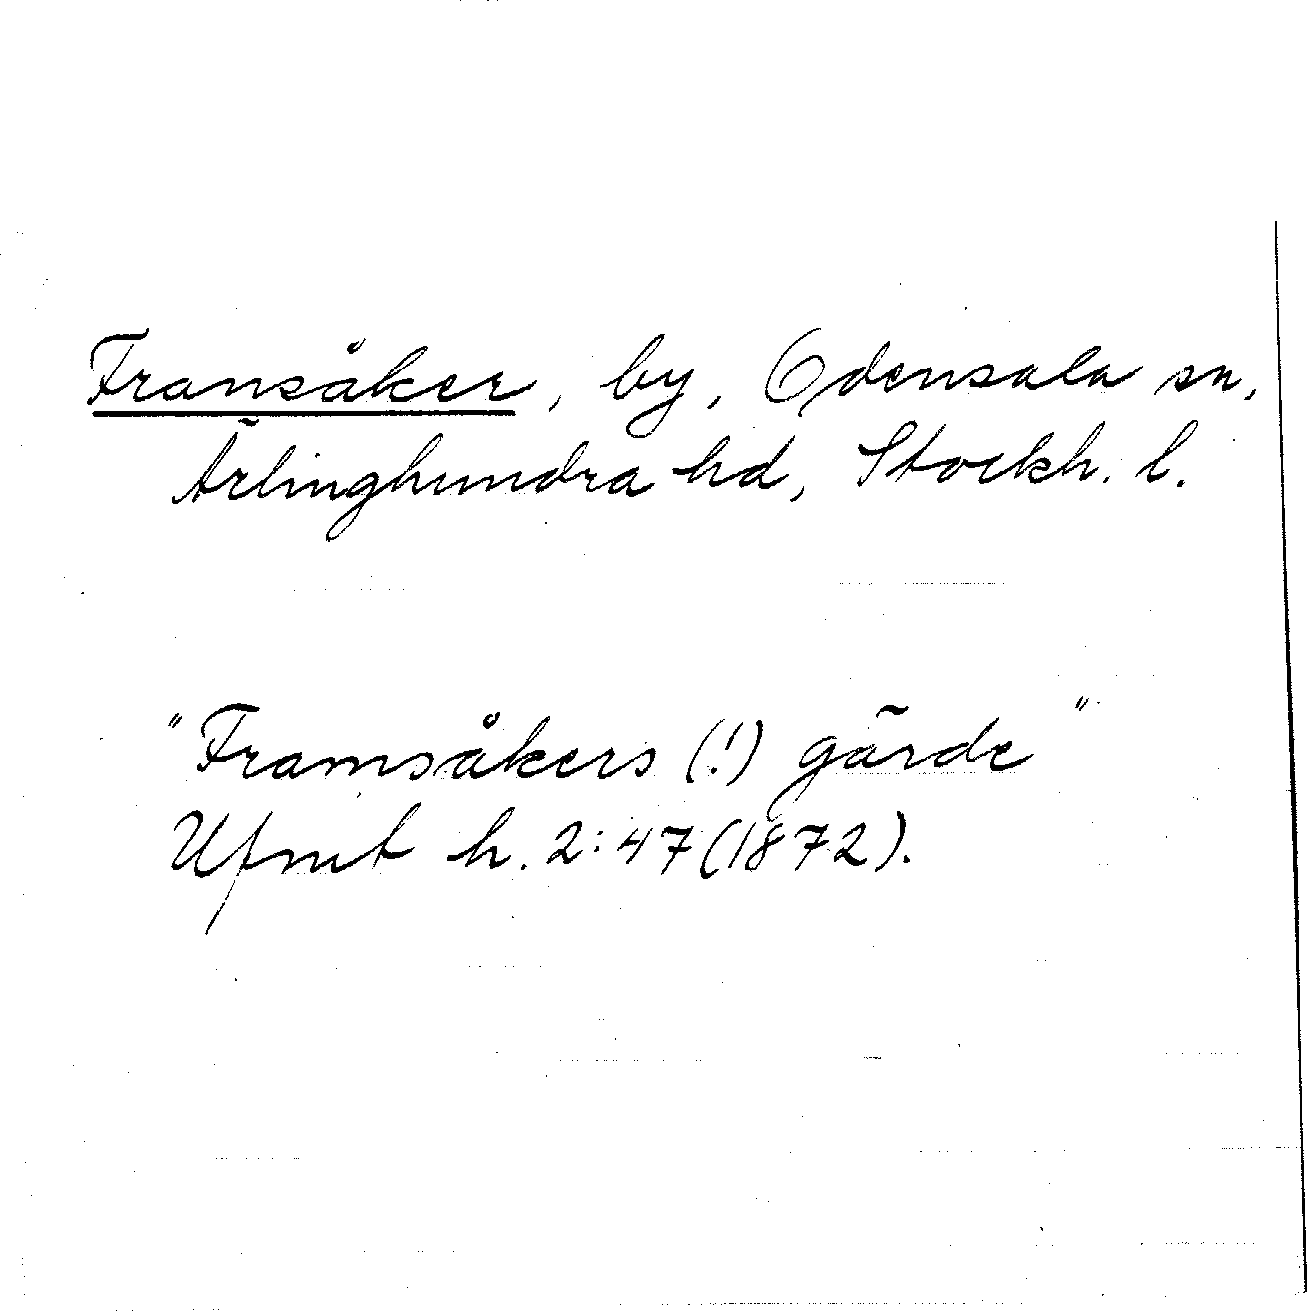 Fransåker, by, Odensala sn,
Ärlinghundra hd, Stockh. l.
"Framsåkers (!) gärde"
Ufmt h. 2:47 (1872).